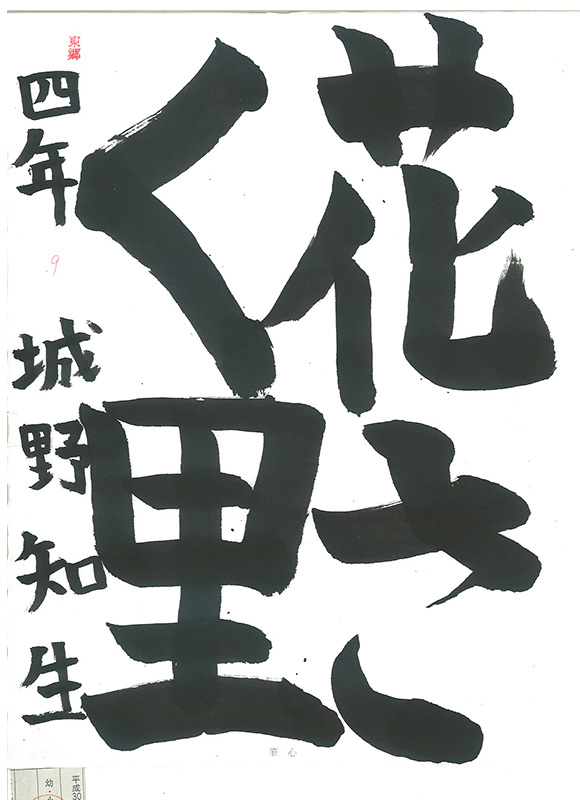 花さ
く里
四年 城野知生
東郷
9
華心
平成30
幼・小